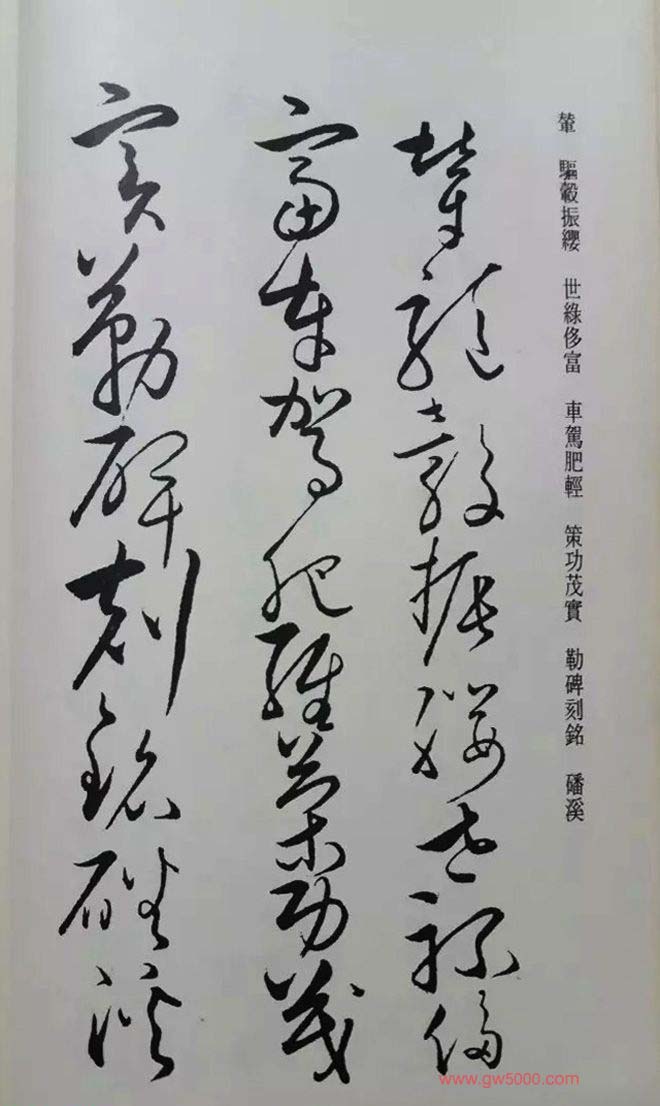 輦 驅轂振纓 世綠侈富 車駕肥輕 策功茂實 勒碑刻銘 磻溪
輦驅轂振纓世祿侈
富車駕肥輕策功茂
實勒碑刻銘磻溪
www.gw5000.com